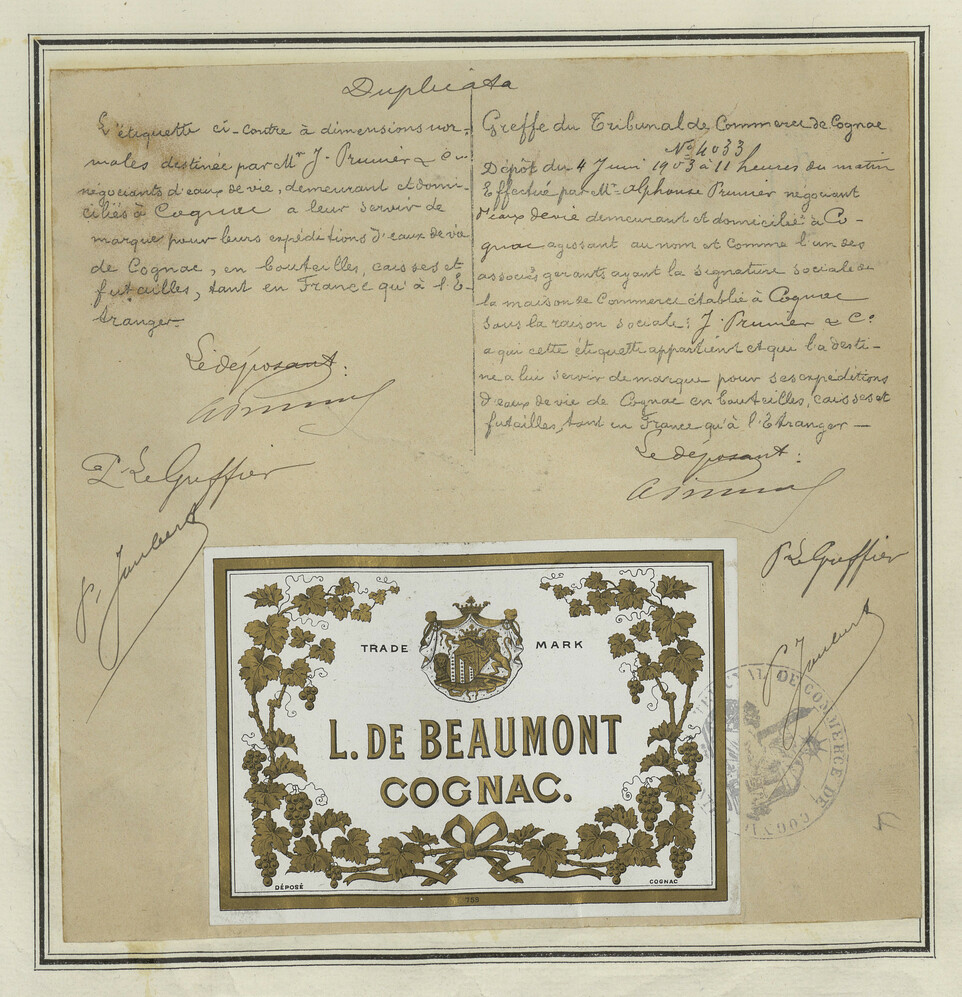 Duplicata
L'étiquette ci-contre à dimensions nor-
males destinée par Mr J. Prunier & Cie
négociants d'eaux de vie, demeurant et domi-
ciliés à Cognac a leur servir de
marque pour leurs expéditions d'eaux de vie
de Cognac, en bouteilles, caisses et
futailles, tant en France qu'à l'E-
tranger.
Le déposant:
P. Le Greffier
Greffe du Tribunal de Commerce de Cognac
No 4033
Dépôt du 4 Juin 1903 à 11 heures du matin
Effectué par Mr Alphonse Prunier négociant
d'eaux de vie demeurant et domicilié à Co-
gnac agissant au nom et comme l'un des
associés gerants ayant la signature sociale de
la maison de Commerce établie à Cognac
sous la raison sociale: J. Prunier & Co
a qui cette étiquette appartient et que l'a desti-
né a lui servir de marque pour ses expéditions
d'eaux de vie de Cognac en bouteilles, caisses et
futailles, tant en France qu'à l'Etranger —
Le déposant:
P. Le Greffier
TRADE MARK
L. DE BEAUMONT
COGNAC.
DÉPOSÉ
COGNAC
TRIBUNAL DE COMMERCE DE COGNAC